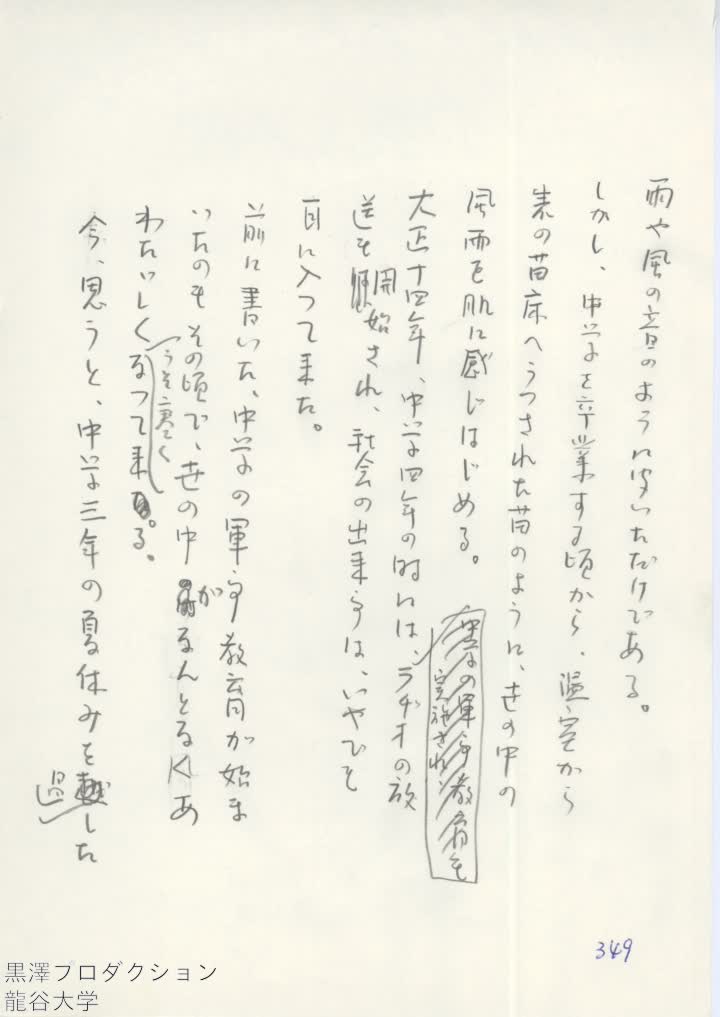 雨や風の音のように聞いただけである。
しかし、中学を卒業する頃から、温室から
表の苗床へうつされた苗のように、世の中の
風雨を肌に感じはじめる。
大正十四年、中学四年の時には、ラヂオの放
送も開始され、社会の出来事は、いやでも
耳に入って来た。
前に書いた、中学の軍事教育が始ま
いたのもその頃で、世の中がなんとなくあ
わたゞしくなって来る。
うそ寒く
今、思うと、中学三年の夏休みを過した
349
黒澤プロダクション
龍谷大学